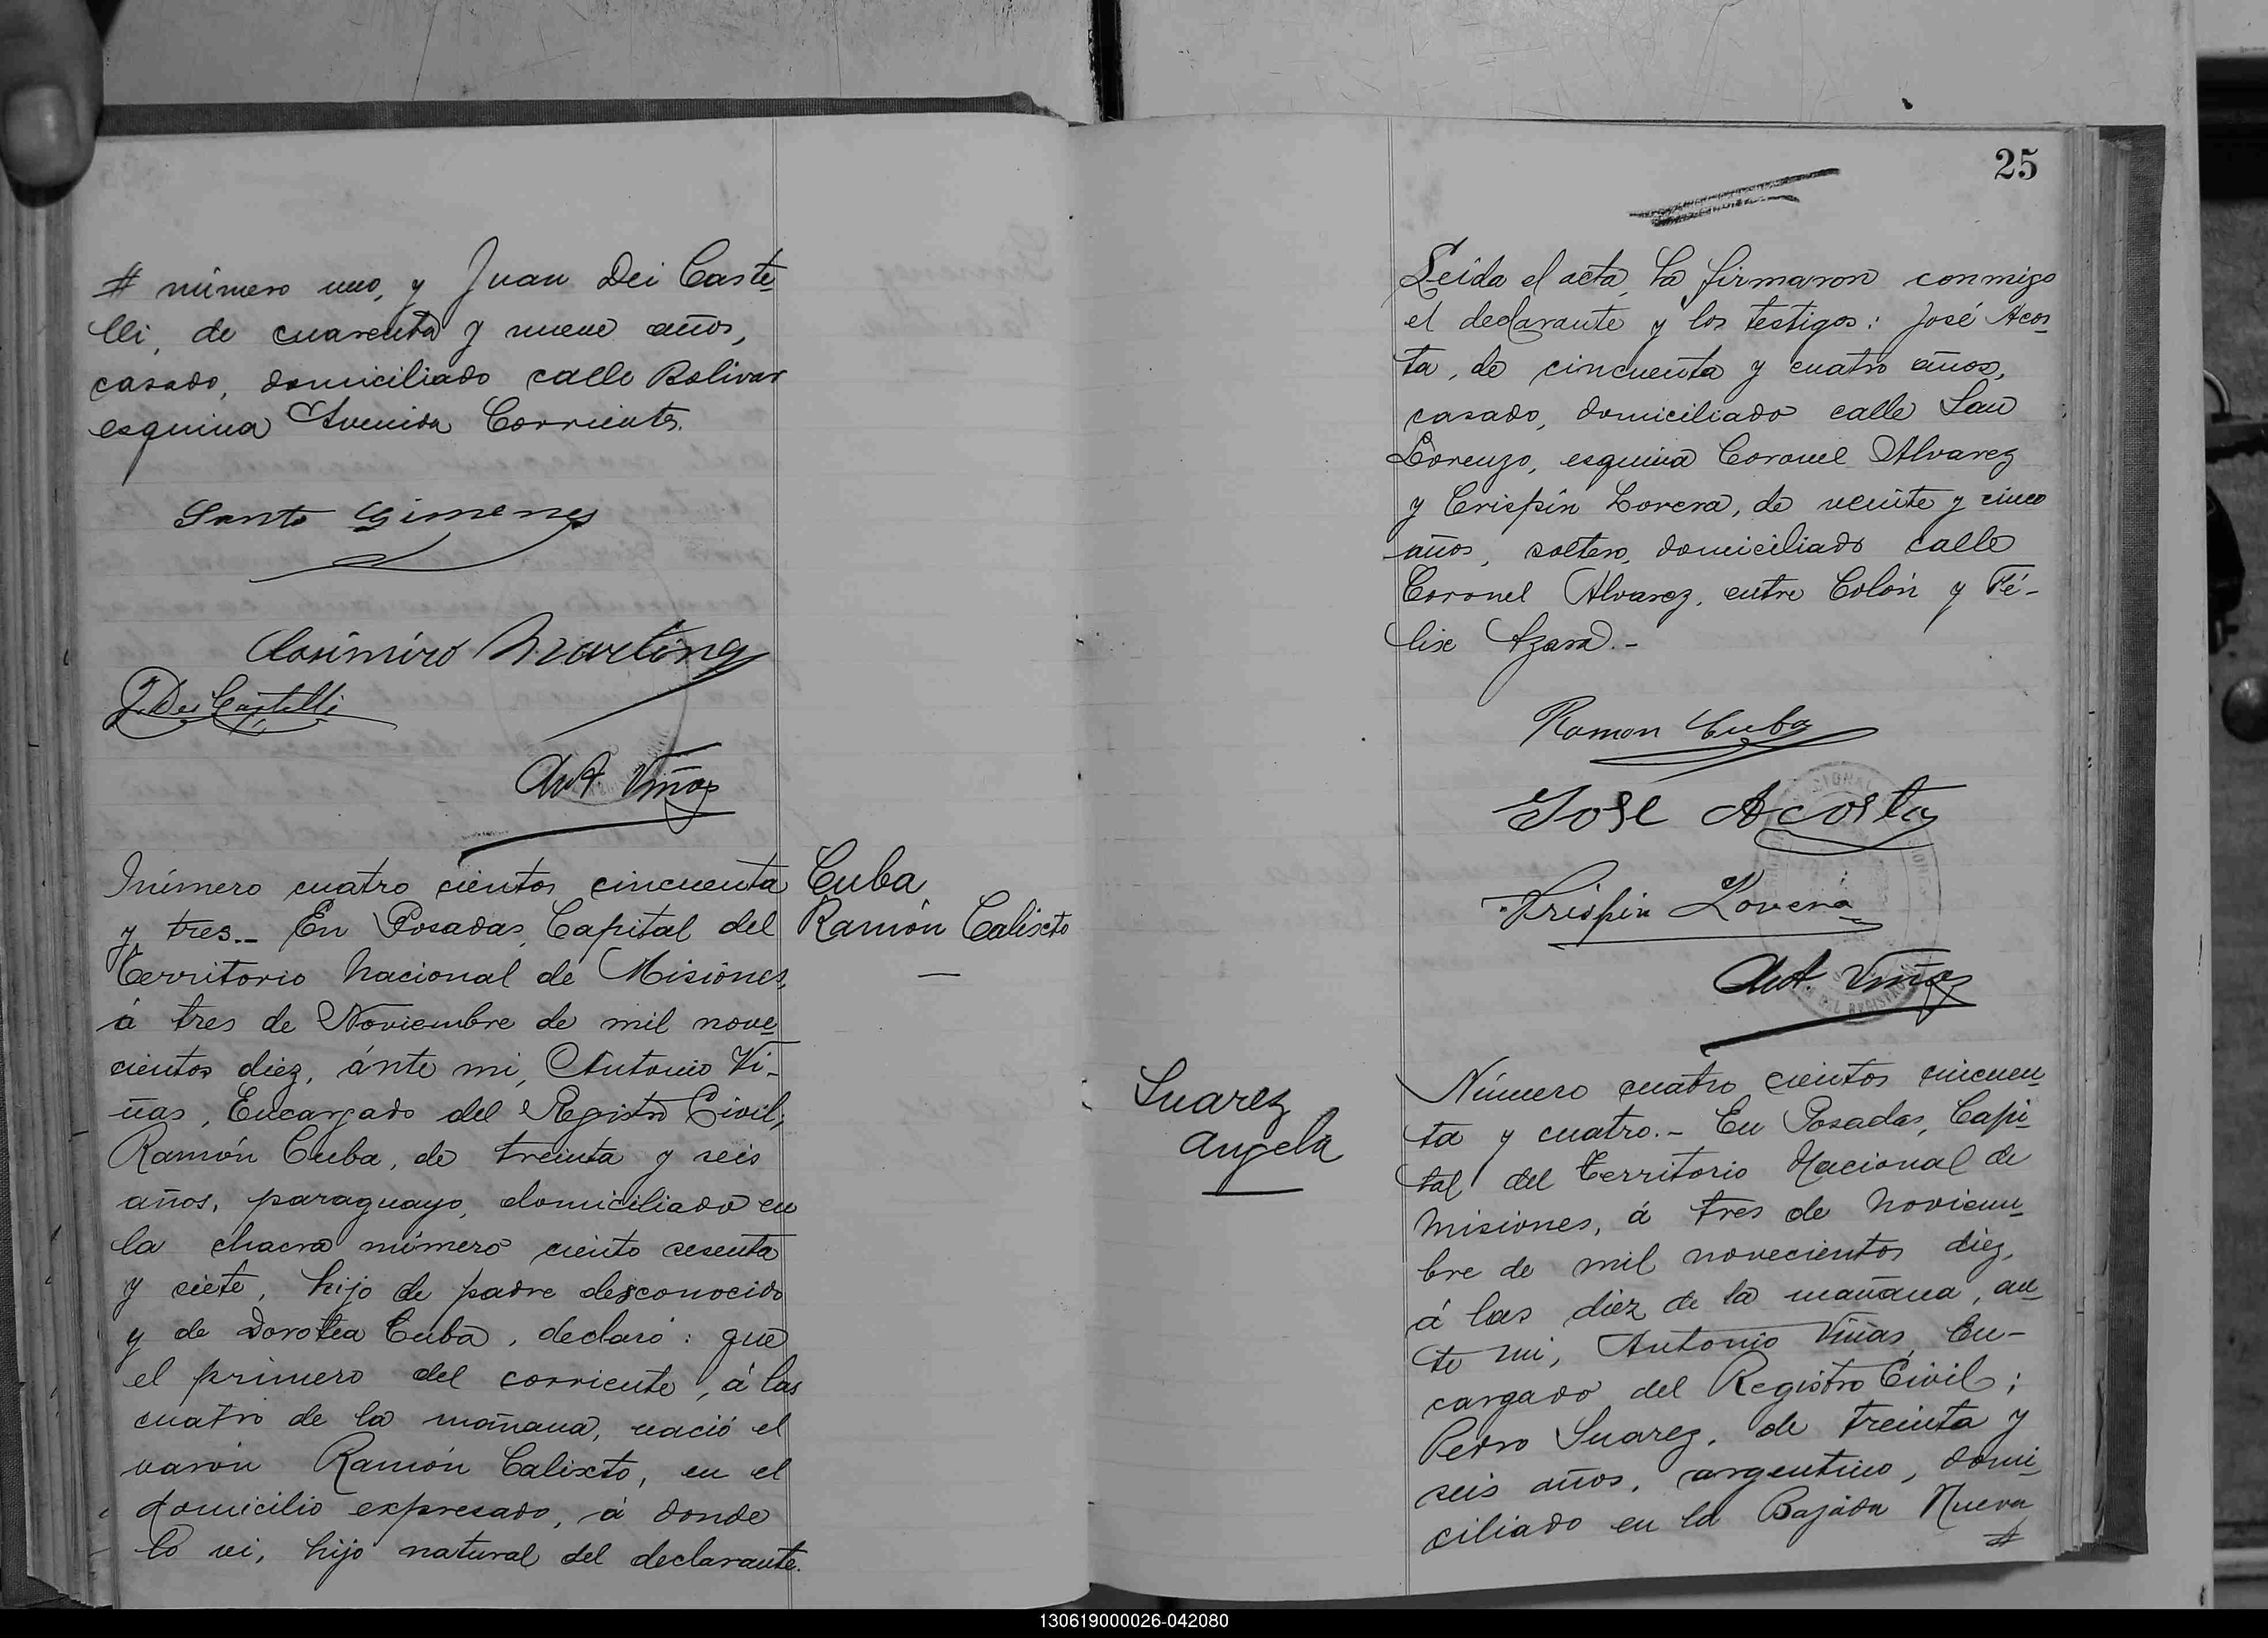 # número uno, y Juan Dei Caste
lli, de cuarenta y nueve años,
casado, domiciliado calle Bolivar
esquina Avenida Corrientes.
Santo Gimenes
Casimiro Martinez
J. Dei Castelli
Ant. Viñas
Número cuatro cientos cincuenta
y tres.- En Posadas, Capital del
Territorio Nacional de Misiones,
á tres de Noviembre de mil nove
cientos diez, ánte mi, Antonio Vi-
ñas, Encargado del Registro Civil;
Ramón Cuba, de treinta y seis
años, paraguayo, domiciliado en
la chacra número ciento sesenta
y siete, hijo de padre desconocido
y de Dorotea Cuba, declaró: que
el primero del corriente, á las
cuatro de la mañana, nació el
varón Ramón Calixto, en el
domicilio expresado, á donde
lo vi, hijo natural del declarante.
Cuba
Ramón Calixto
25
Leida el acta, la firmaron conmigo
el declarante y los testigos: José Acos
ta, de cincuenta y cuatro años,
casado, domiciliado calle San
Lorenzo, esquina Coronel Alvarez
y Crispín Lovera, de veinte y cinco
años, soltero, domiciliado calle
Coronel Alvarez, entre Colón y Fé-
lix Azara.-
Ramon Cuba
Jose Acosta
Krispin Lovera
Ant. Viñas
Suarez
Angela
Número cuatro cientos cincuen
ta y cuatro.- En Posadas, Capi
tal del Territorio Nacional de
Misiones, á tres de Noviem
bre de mil novecientos diez,
á las diez de la mañana, an
te mi, Antonio Viñas, En-
cargado del Registro Civil;
Pedro Suarez, de treinta y
seis años, argentino, domi
ciliado en la Bajada Nueva
#
130619000026-042080